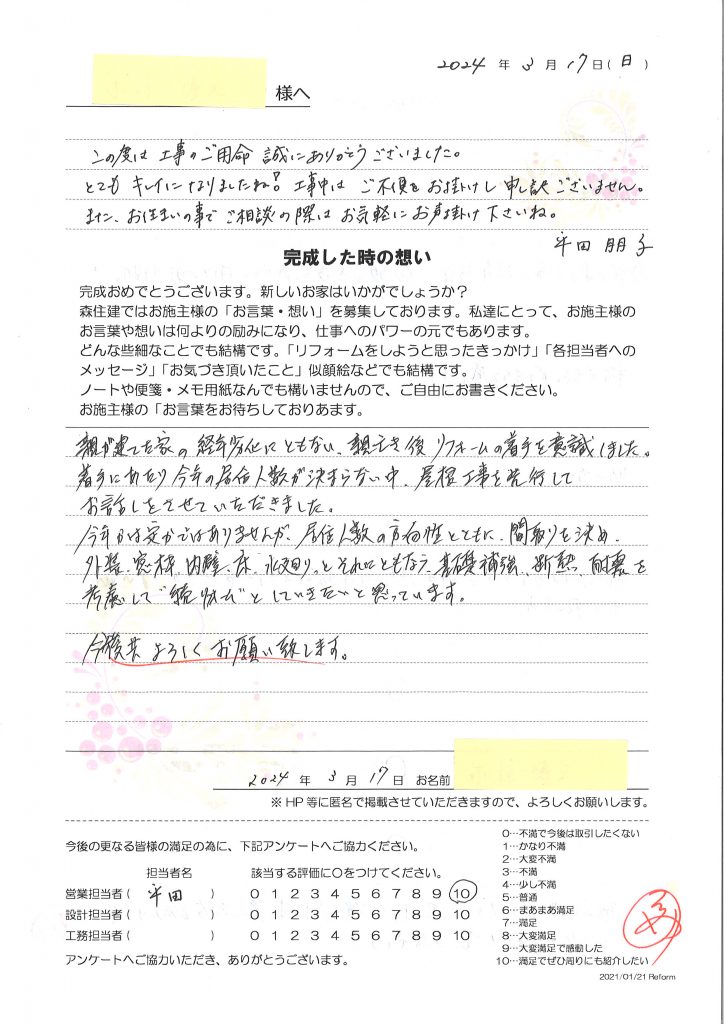 2024 年 3 月 17 日(日)
様へ
この度は 工事のご用命 誠にありがとうございました。
とても キレイになりましたね! 工事中は ご不便をお掛けし 申し訳ございません。
また、お住まいの事で ご相談の際は お気軽に お声掛け下さいね。
平田 朋子
完成した時の想い
完成おめでとうございます。新しいお家はいかがでしょうか?
森住建ではお施主様の「お言葉・想い」を募集しております。私達にとって、お施主様の
お言葉や想いは何よりの励みになり、仕事へのパワーの元でもあります。
どんな些細なことでも結構です。「リフォームをしようと思ったきっかけ」「各担当者への
メッセージ」「お気づき頂いたこと」似顔絵などでも結構です。
ノートや便箋・メモ用紙なんでも構いませんので、ご自由にお書きください。
お施主様の「お言葉をお待ちしておりあます。
親が建てた家の 経年劣化に ともない、親亡き後 リフォームの着手を意識しました。
着手にあたり 今年の居住人数が決まらない中、屋根工事を先行して
お話しをさせていただきました。
ではありませんが、居住人数の方向性とともに、間取りを決め、
外装、窓枠、内壁、床、水廻り、とそれにともなう 基礎補強、断熱、耐震を
考慮して"続リフォーム"としていきたいと思っています。
今後共 よろしく お願い致します。
2024 年 3 月 17 日 お名前
※HP 等に匿名で掲載させていただきますので、よろしくお願いします。
今後の更なる皆様の満足の為に、下記アンケートへご協力ください。
担当者名 該当する評価に○をつけてください。
営業担当者( 平田 ) 0 1 2 3 4 5 6 7 8 9 10
設計担当者( ) 0 1 2 3 4 5 6 7 8 9 10
工務担当者( ) 0 1 2 3 4 5 6 7 8 9 10
アンケートへご協力いただき、ありがとうございます。
0…不満で今後は取引したくない
1…かなり不満
2…大変不満
3…不満
4…少し不満
5…普通
6…まあまあ満足
7…満足
8…大変満足
9…大変満足で感動した
10…満足でぜひ周りにも紹介したい
2021/01/21 Reform